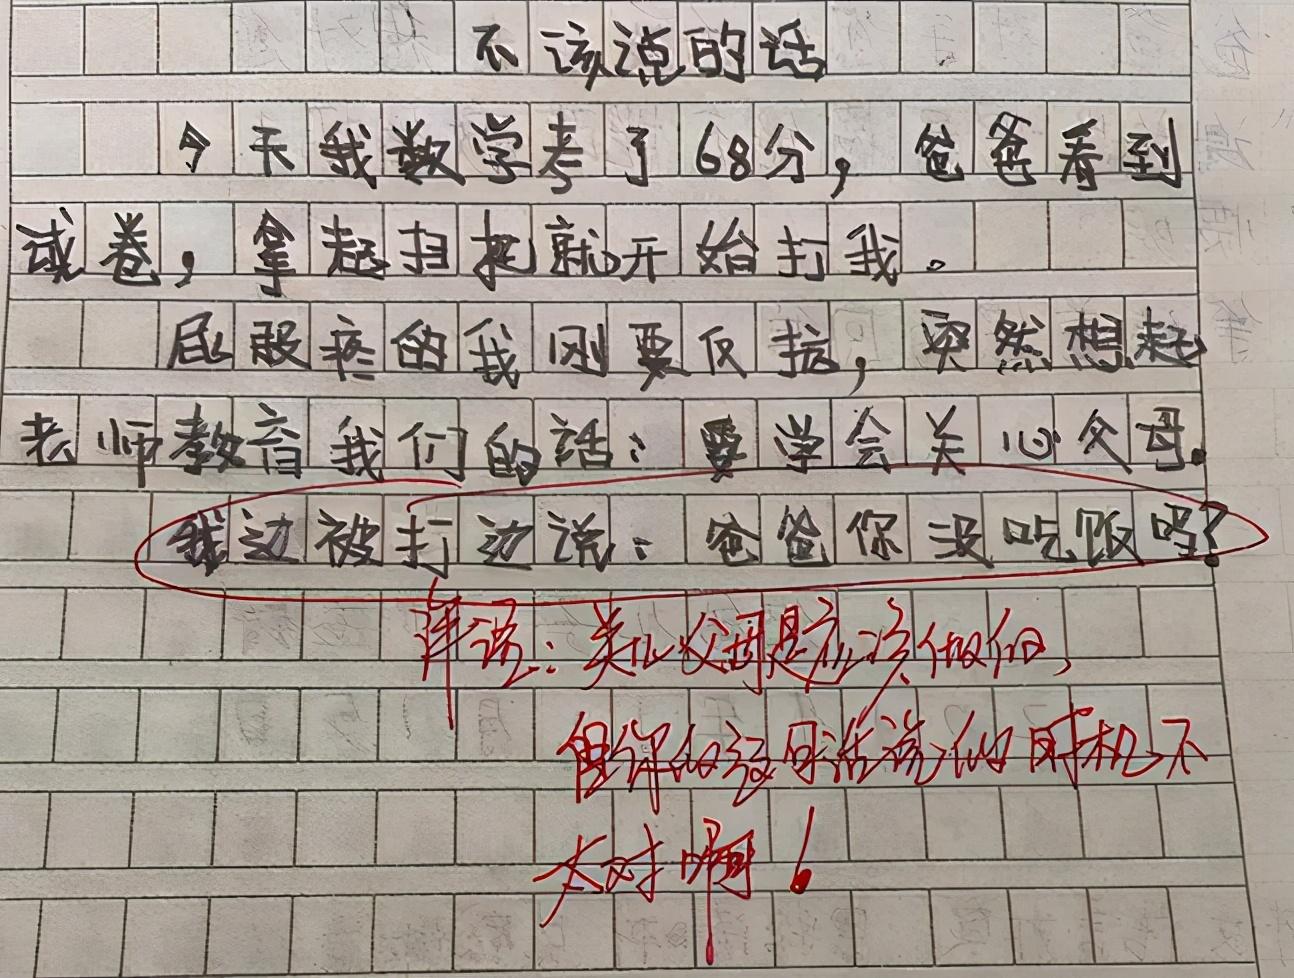 不该说的话
今天我数学考了68分，爸爸看到
试卷，拿起扫把就开始打我。
屁股疼的我刚要反抗，突然想起
老师教育我们的话：要学会关心父母。
我边被打边说：爸爸你没吃饭吗？
详说：关心父母是应该做的，
但你的这句话说的时机不
太对啊！